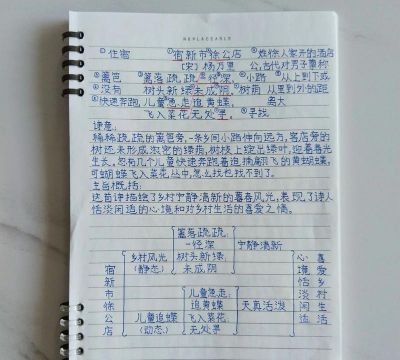 ①住宿 ①宿新市②徐公店 ②姓徐人家开的酒店
〔宋〕杨万里 公:古代对男子尊称
③篱笆 ③篱落疏疏④一径⑤深, ④小路 ⑤从上到下或
⑥没有 树头新绿⑥未成阴。 树荫 从里到外的距离大
⑧快速奔跑 儿童⑧急走追黄蝶,
飞入菜花无处⑨寻。 ⑨寻找
译意:
稀稀疏疏的篱笆旁,一条乡间小路伸向远方,客店旁的
树还未形成浓密的绿荫,树枝上绽出绿叶,迎着春光
生长。忽有几个儿童快速奔跑着追 翩翩飞的黄蝴蝶。
可蝴蝶飞入菜花丛中,怎么找也找不到了。
主旨概括:
这首诗描绘了乡村宁静清新的暮春风光,表现了诗人
恬淡闲适的心境和对乡村生活的喜爱之情。
宿新市徐公店
乡村风光(静态)
篱落疏疏一径深
树头新绿未成阴
宁静清新
儿童追蝶(动态)
儿童急走追黄蝶
飞入菜花无处寻
天真活泼
心境恬淡闲适
喜爱乡村生活